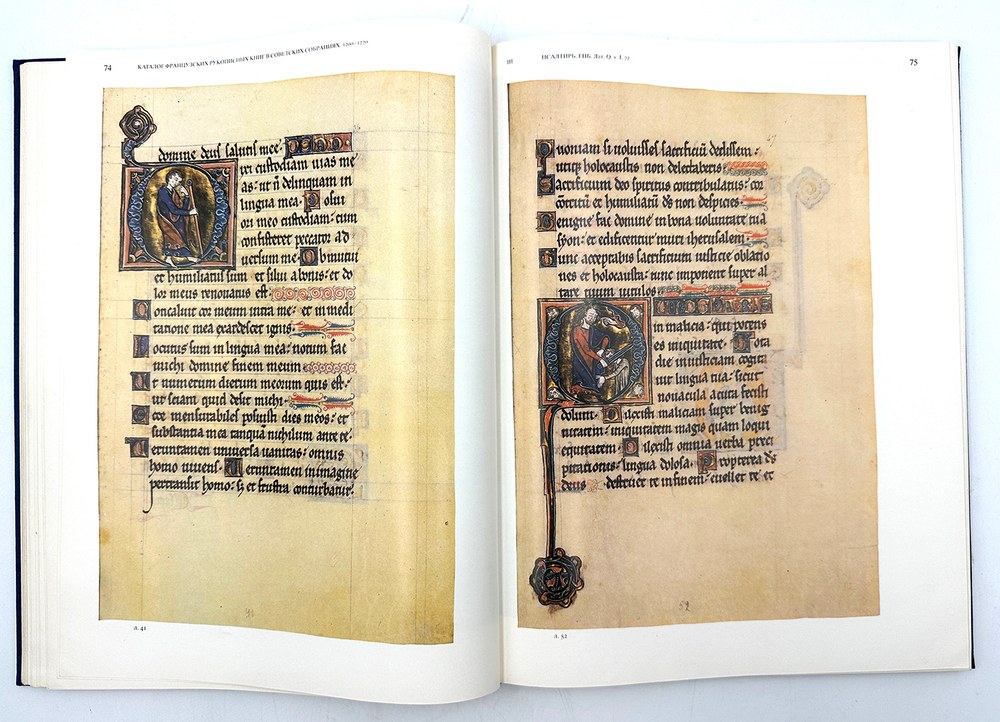 74
КАТАЛОГ ФРАНЦУЗСКИХ РУКОПИСНЫХ КНИГ В СОВЕТСКИХ СОБРАНИЯХ. 1200–1270
domine deus salutis mee·
ixi custodiam uias me
as· ut ñ delinquam in
lingua mea· Posui
ori meo custodiam· cum
consisteret peccator ad
uersum me· Obmutui
et humiliatus sum et silui a bonis· et do
lor meus renouatus est·
Concaluit cor meum intra me· et in medi
tatione mea exardescet ignis·
Locutus sum in lingua mea· notum fac
michi domine finem meum
Et numerum dierum meorum quis est·
ut sciam quid desit michi·
Ecce mensurabiles posuisti dies meos· et
substantia mea tanquā nichilum ante te·
Veruntamen uniuersa uanitas· omnis
homo uiuens· Veruntamen in imagine
pertransit homo· sꝫ et frustra conturbatur·
41
л. 41
III
ПСАЛТИРЬ. ГПБ. Лат. Q. v. I, 71
75
Quoniam si uoluisses sacrificiū dedissem·
utiqꝫ holocaustis non delectaberis
Sacrificium deo spiritus contribulatus· cor
contritū et humiliatū ds̄ non despicies·
Benigne fac domine in bona uoluntate tua
syon· et edificentur muri iherusalem·
Tunc acceptabis sacrificium iusticie oblatio
nes et holocausta· tunc imponent super al
tare tuum uitulos
in malicia· qui potens
es iniquitate· Tota
die iniusticiam cogita
uit lingua tua· sicut
nouacula acuta fecisti
dolum· Dilexisti maliciam super benig
nitatem· iniquitatem magis quam loqui
equitatem Dilexisti omnia uerba preci
pitationis· lingua dolosa· Propterea ds̄
deus destruet te in finem· euellet te et
52
л. 52